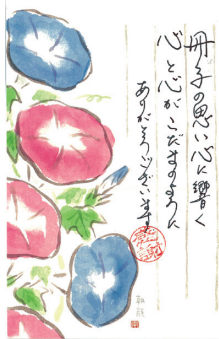 冊子の思い心に響く
心と心がこだまのように
ありがとうございます